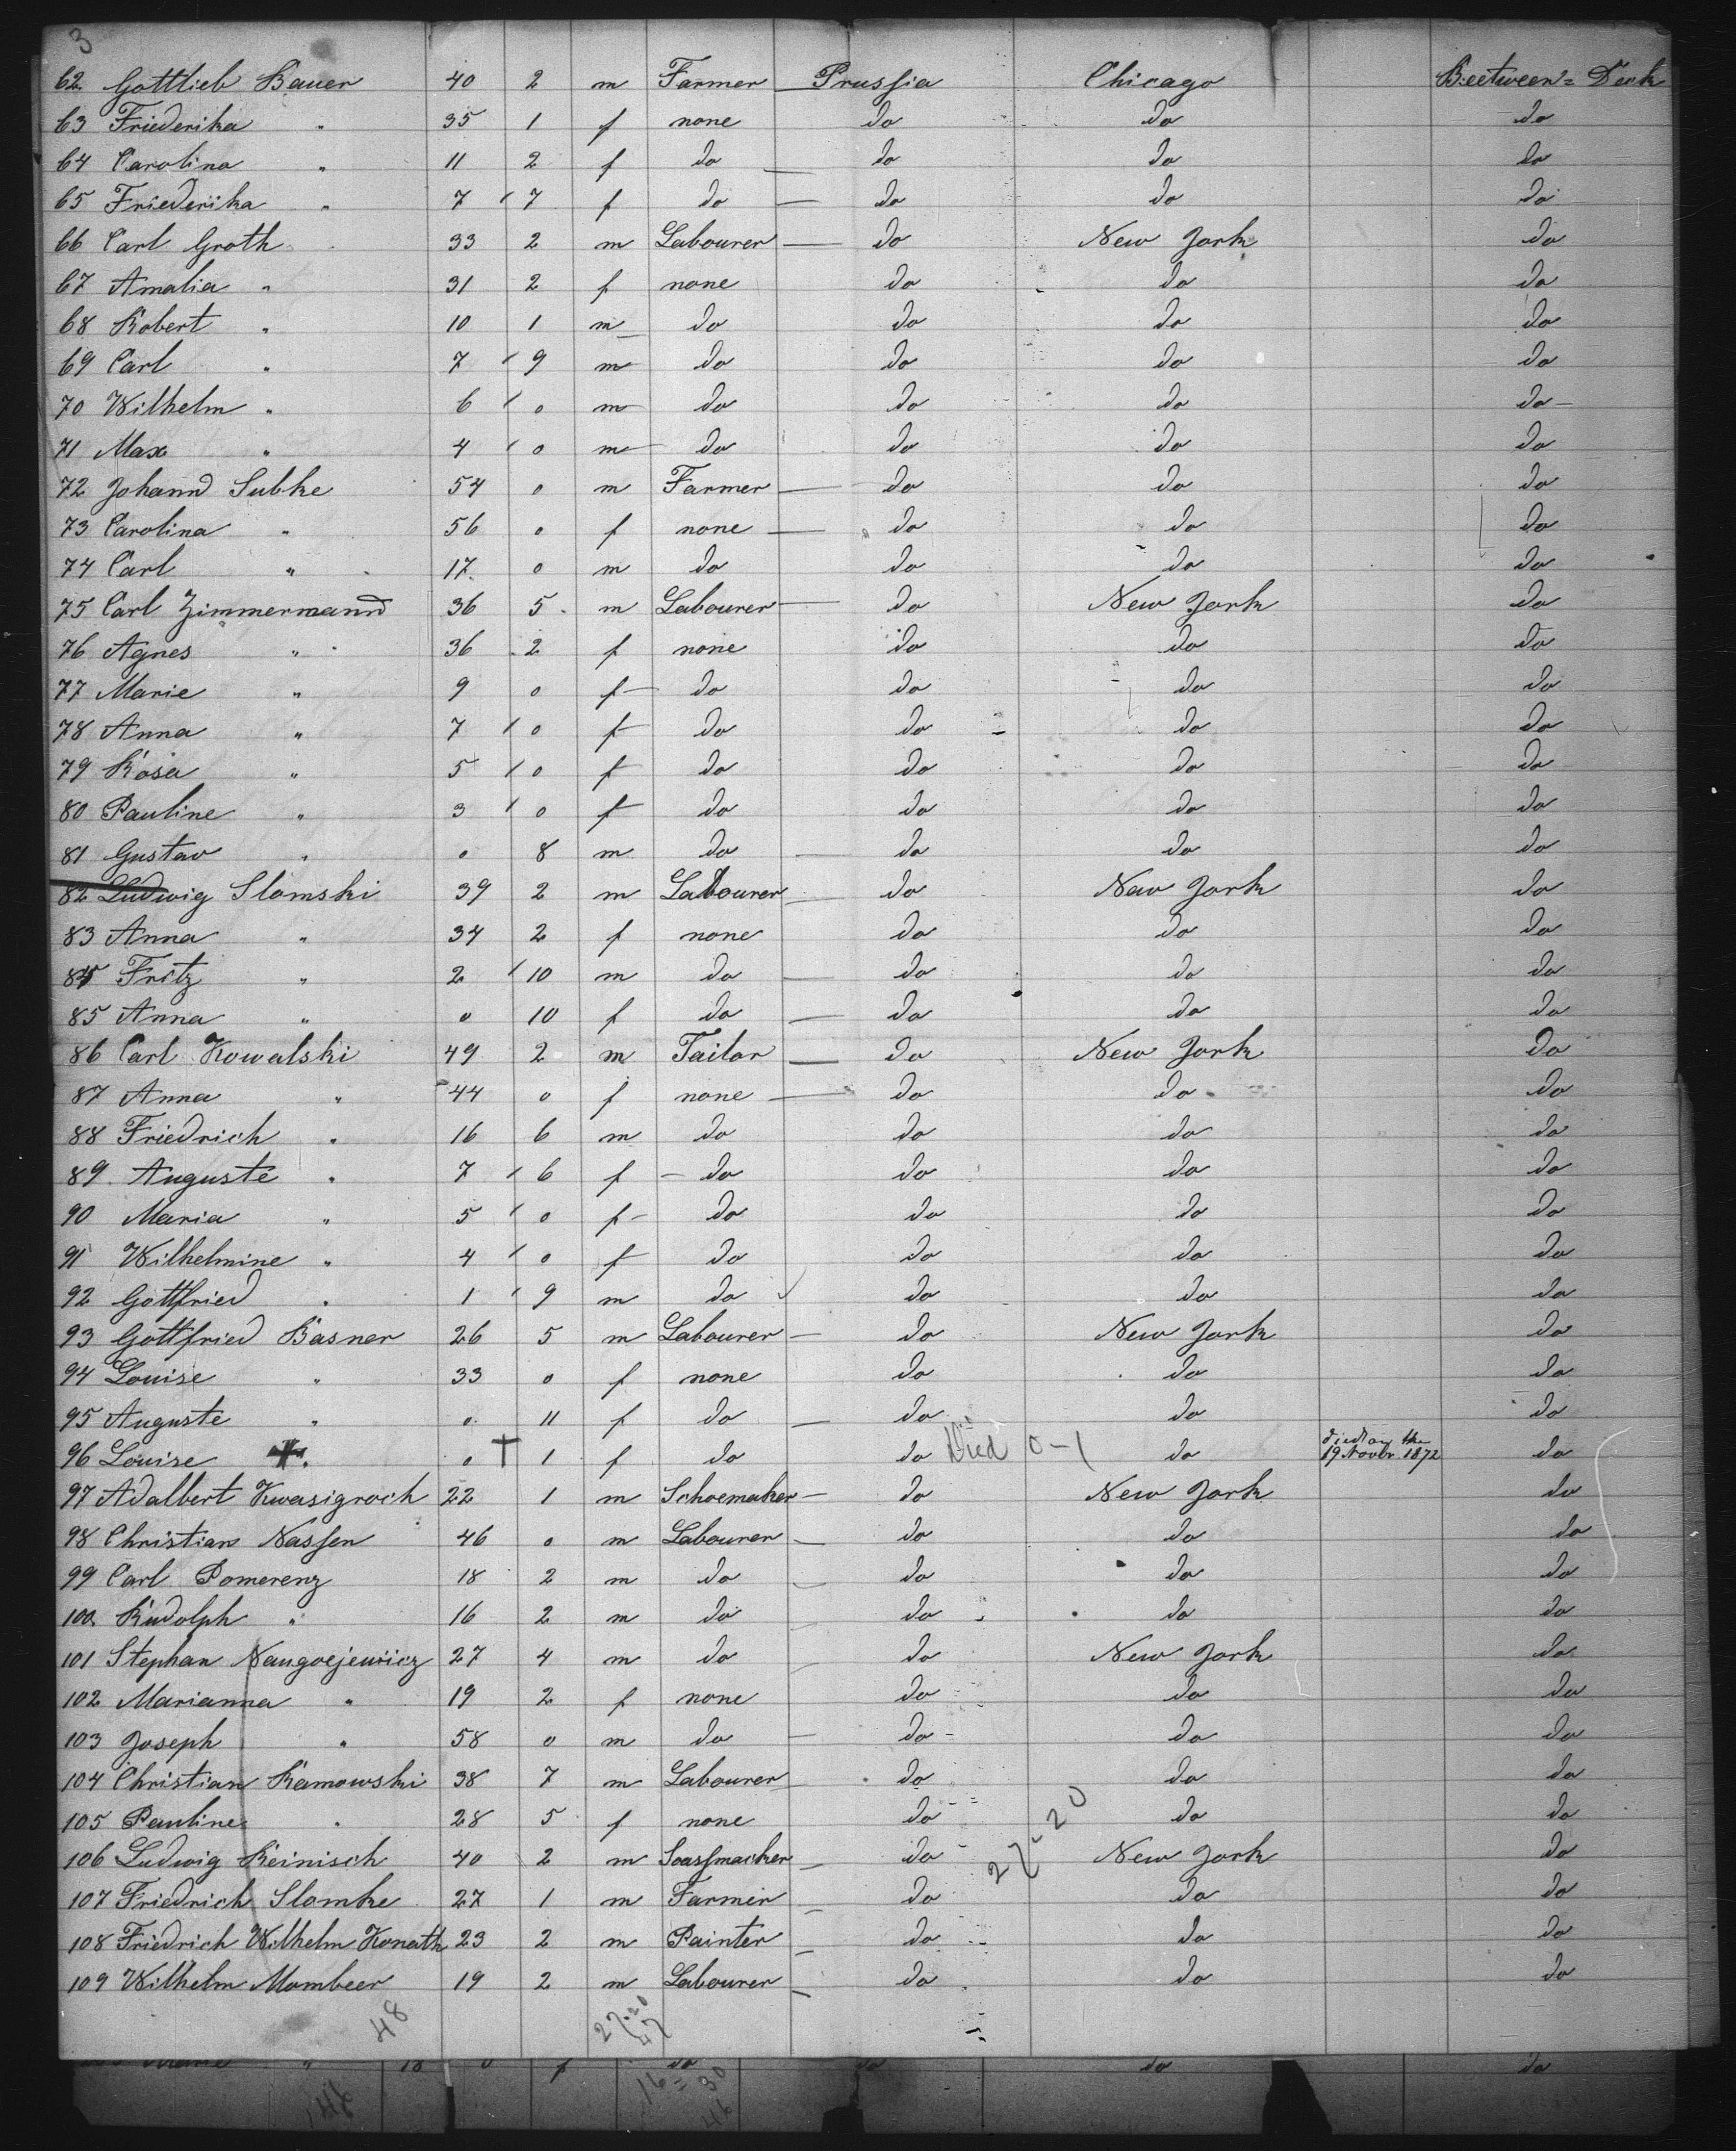 3
62 Gottlieb Bauer 40 2 m Farmer Prussia Chicago Beetween= Deck
63 Friederika " 35 1 f none do do do
64 Carolina " 11 2 f do do do do
65 Friederika " 7 7 f do do do do
66 Carl Groth 33 2 m Labourer do New York do
67 Amalia " 31 2 f none do do do
68 Robert " 10 1 m do do do do
69 Carl " 7 9 m do do do do
70 Wilhelm " 6 0 m do do do do
71 Max " 4 0 m do do do do
72 Johann Lubke 54 0 m Farmer do do do
73 Carolina " 56 0 f none do do do
74 Carl " 17 0 m do do do do
75 Carl Zimmermann 36 5 m Labourer do New York do
76 Agnes " 36 2 f none do do do
77 Marie " 9 0 f do do do do
78 Anna " 7 0 f do do do do
79 Rosa " 5 0 f do do do do
80 Pauline " 3 0 f do do do do
81 Gustav " 0 8 m do do do do
82 Ludwig Slomski 39 2 m Labourer do New York do
83 Anna " 34 2 f none do do do
84 Fritz " 2 10 m do do do do
85 Anna " 0 10 f do do do do
86 Carl Kowalski 49 2 m Tailor do New York do
87 Anna " 44 0 f none do do do
88 Friedrich " 16 6 m do do do do
89 Auguste " 7 6 f do do do do
90 Maria " 5 0 f do do do do
91 Wilhelmine " 4 0 f do do do do
92 Gottfried " 1 9 m do do do do
93 Gottfried Basner 26 5 m Labourer do New York do
94 Louise " 33 0 f none do do do
95 Auguste " 0 11 f do do do do
96 Louise " 0 † 1 f do do Died 0-1 do died on the 19 Novbr 1872 do
97 Adalbert Kwasigroch 22 1 m Schoemaker do New York do
98 Christian Nassen 46 0 m Labourer do do do
99 Carl Pomerenz 18 2 m do do do do
100 Rudolph " 16 2 m do do do do
101 Stephan 27 4 m do do New York do
102 Marianna " 19 2 f none do do do
103 Joseph " 58 0 m do do do do
104 Christian Ramowski 38 7 m Labourer do do do
105 Pauline " 28 5 f none do do do
106 Ludwig Reinisch 40 2 m do New York do
107 Friedrich Slomke 27 1 m Farmer do do do
108 Friedrich Wilhelm Konath 23 2 m Painter do do do
109 Wilhelm Mombeer 19 2 m Labourer do do do
27-20
48
27.20
47
Marie " 18 0 f do do do do
16=30
46